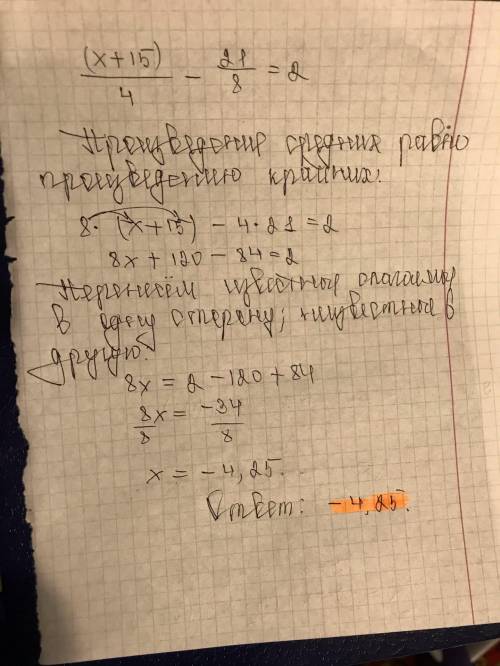 (x+15)/4 - 21/8 = 2
Произведение средних равно
произведению крайних:
8·(x+15) - 4·21 = 2
8x + 120 - 84 = 2
Перенесём известные слагаемые
в одну сторону, неизвестные в
другую.
8x = 2 - 120 + 84
8x/8 = -34/8
x = -4,25.
Ответ: -4,25.